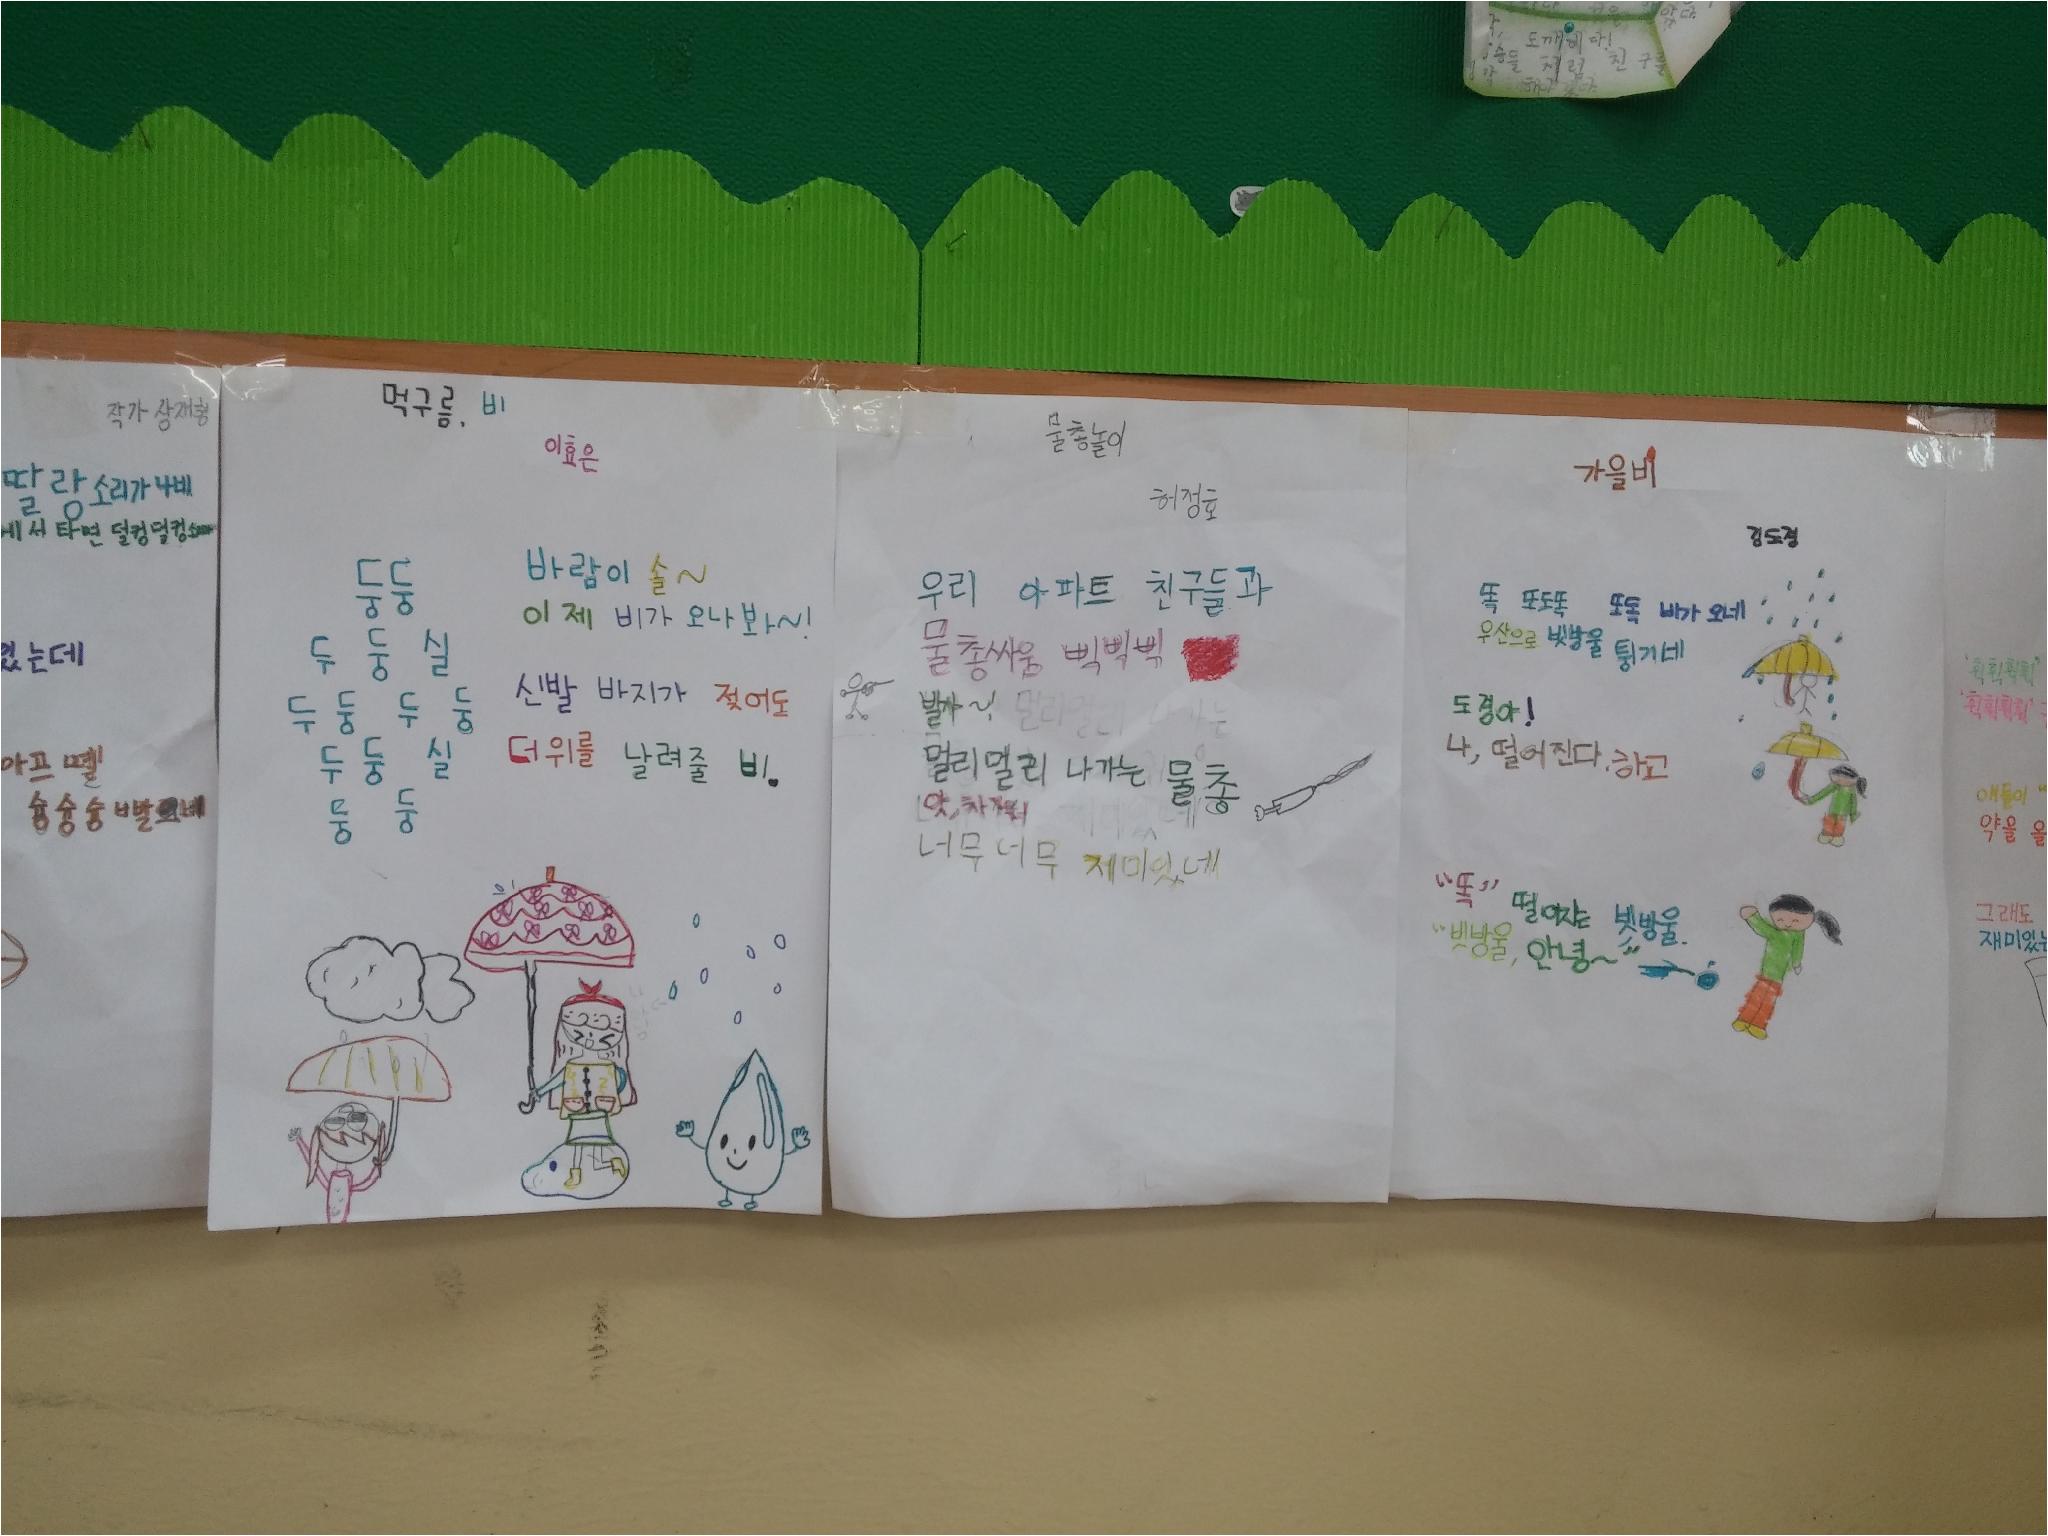 도깨비다!
처럼 친구를
작가 상재형
딸랑 소리가 나네
에서 타면 덜컹덜컹
었는데
아프 땐
슝슝슝
먹구름, 비
이효은
둥둥
두 둥 실
두 둥 두 둥
두 둥 실
둥 둥
바람이 솔~
이제 비가 오나 보아~!
신발 바지가 젖어도
더위를 날려줄 비.
물총놀이
허정호
우리 아파트 친구들과
물총싸움 삑삑삑
발사~!
멀리멀리 나가는 물총
앗, 차가워
너무너무 재미있네
가을비
김도경
똑 또도똑 또독 비가 오네
우산으로 빗방울 튕기네
도경아!
나, 떨어진다. 하고
"똑" 떨어지는 빗방울.
"빗방울, 안녕~"
'휙휙휙휙'
'휙휙휙휙'
애들이
약을 올
그래도
재미있는